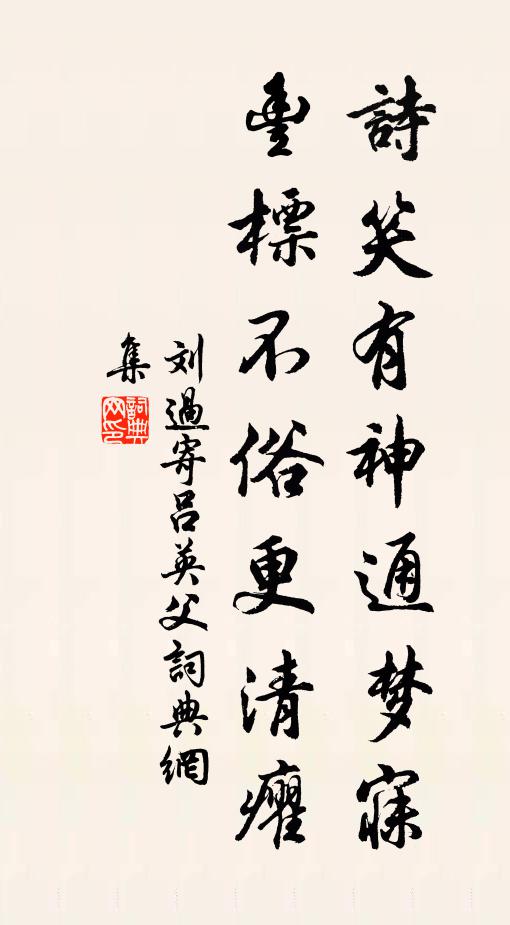 詩笑有神通梦寐
豊標不俗更清癯
刘過寄呂英父詞典網
集
詞典网印